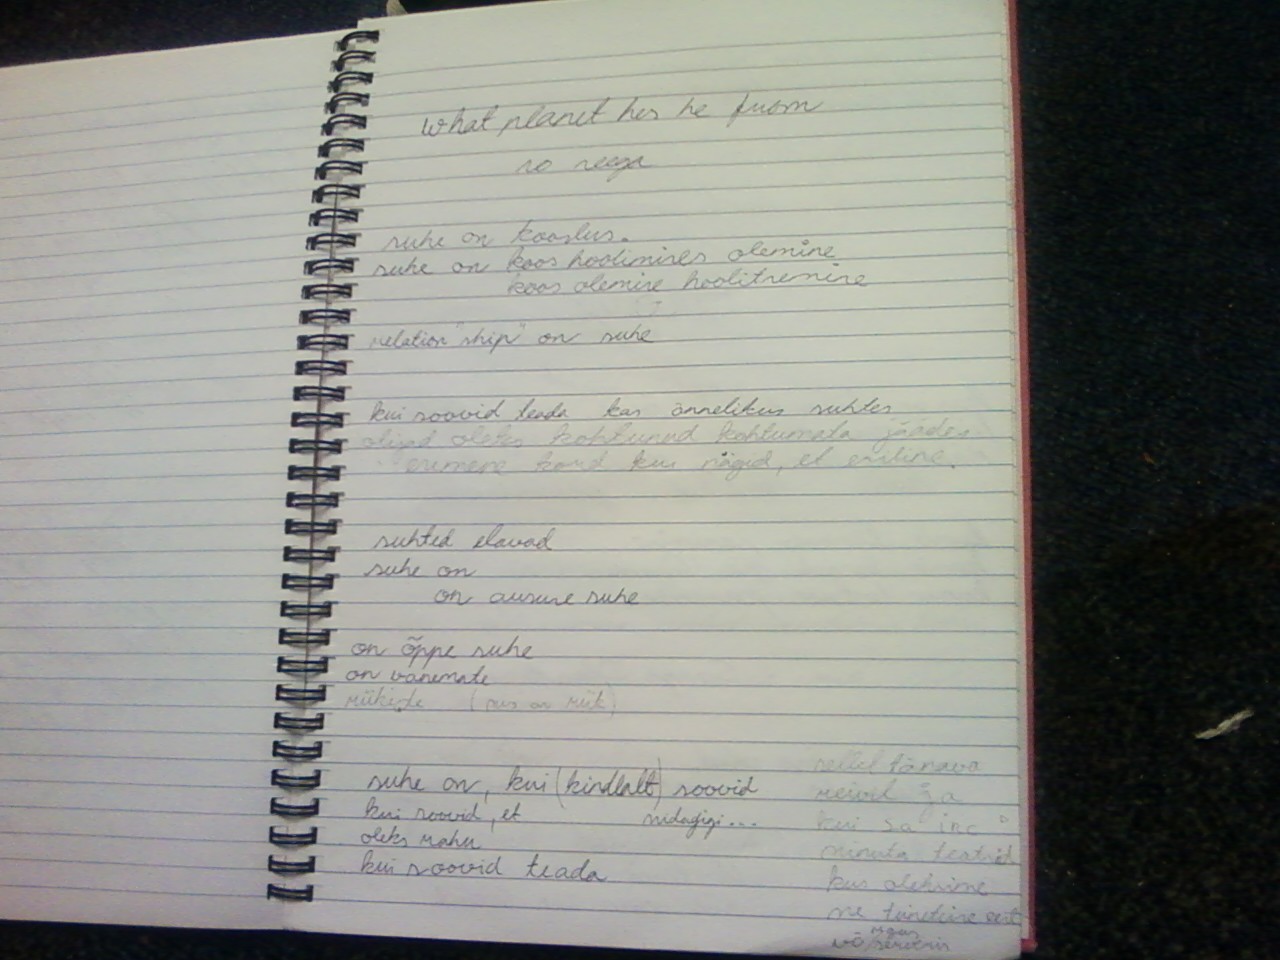 what planet hes he from
so seega
suhe on kooslus.
suhe on koos hoolimises olemine
koos olemine hoolitsemine
relation "ship" on suhe
kui soovid teada kas õnnelikus suhtes
oleks kohtunud kohtumata jäädes
esimene kord kui nägid, et eriline.
suhted elavad
suhe on
on aususe suhe
on õppe suhe
on vanemate
riikide (sus on riik)
suhe on, kui (kindlalt) soovid
kui soovid, et midagigi...
oleks rahu
kui soovid teada
sellel tänava
kui sa
minuta teatrid
kus oleksime
me